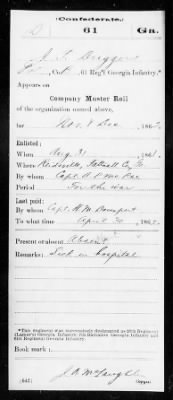 Confederate.
61 Ga.
J. L. Dugger
Co. , 61 Reg't Georgia Infantry.*
Appears on
Company Muster Roll
of the organization named above,
for Nov. & Dec , 186
Enlisted:
When Aug 31 , 186
Where Reidsville, Tattnall Co Ga
By whom Capt. A. P. McRae
Period For the war
Last paid:
By whom Capt. H. M.
To what time April 30 , 186
Present or absent Absent
Remarks: Sick in hospital
*This Regiment was successively designated as 26th Regiment
(Lamar's) Georgia Infantry, 7th Battalion Georgia Infantry and
61st Regiment Georgia Infantry.
Book mark:
(642) Copyist.